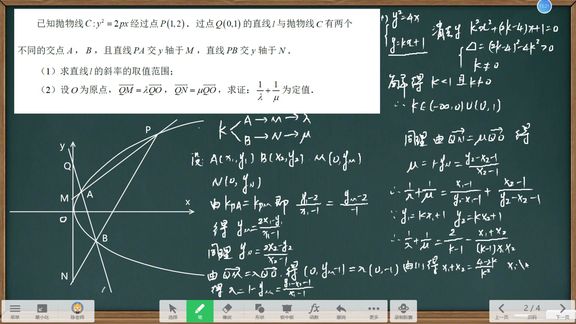 已知抛物线 C: y² = 2px 经过点 P(1,2)。过点 Q(0,1) 的直线 l 与抛物线 C 有两个
不同的交点 A，B，且直线 PA 交 y 轴于 M，直线 PB 交 y 轴于 N。
（1）求直线 l 的斜率的取值范围；
（2）设 O 为原点，QM = λQO，QN = μQO，求证：1/λ + 1/μ 为定值.
y² = 4x
y = kx+1
k²x² + (2k-4)x + 1 = 0
Δ = (2k-4)² - 4k² > 0
k ≠ 0
解得 k < 1 且 k ≠ 0
∴ k ∈ (-∞, 0) ∪ (0, 1)
k
A → M → λ
B → N → μ
设: A(x₁, y₁) B(x₂, y₂) M(0, yM)
N(0, yN)
由 kPA = kPM 即 y₁-2/x₁-1 = yM-2/-1
得 yM = 2x₁-y₁/x₁-1
同理 yN = 2x₂-y₂/x₂-1
由 QM = λQO 得 (0, yM-1) = λ(0, -1)
得 λ = 1-yM = y₁-x₁-1/x₁-1
同理由 QN = μQO 得
μ = 1-yN = y₂-x₂-1/x₂-1
∴ 1/λ + 1/μ = x₁-1/y₁-x₁-1 + x₂-1/y₂-x₂-1
∵ y₁ = kx₁+1 y₂ = kx₂+1
∴ 1/λ + 1/μ = 2/k-1 - x₁+x₂/(k-1)x₁x₂
由(1)得 x₁+x₂ = 4-2k/k² x₁
y
Q
P
M
A
O
x
B
N
菜单
选择
笔
橡皮
形状
软中板
函数
撤销
更多
录制批量
上一页
2 / 4
下一页